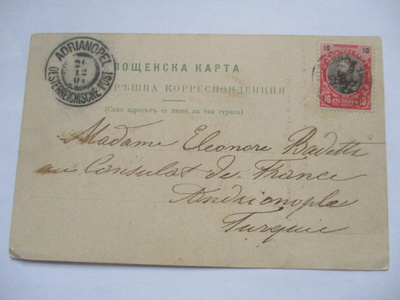 ADRIANOPEL
21
12
ÖSTERREICHISCHE POST
ПОЩЕНСКА КАРТА
КОРРЕСПОНДЕНЦИЯ
(Само адресътъ се пише на тая страна)
10 10
10 10
Madame Eleonore Badetti
au Consulat de France
Andrianople
Turquie